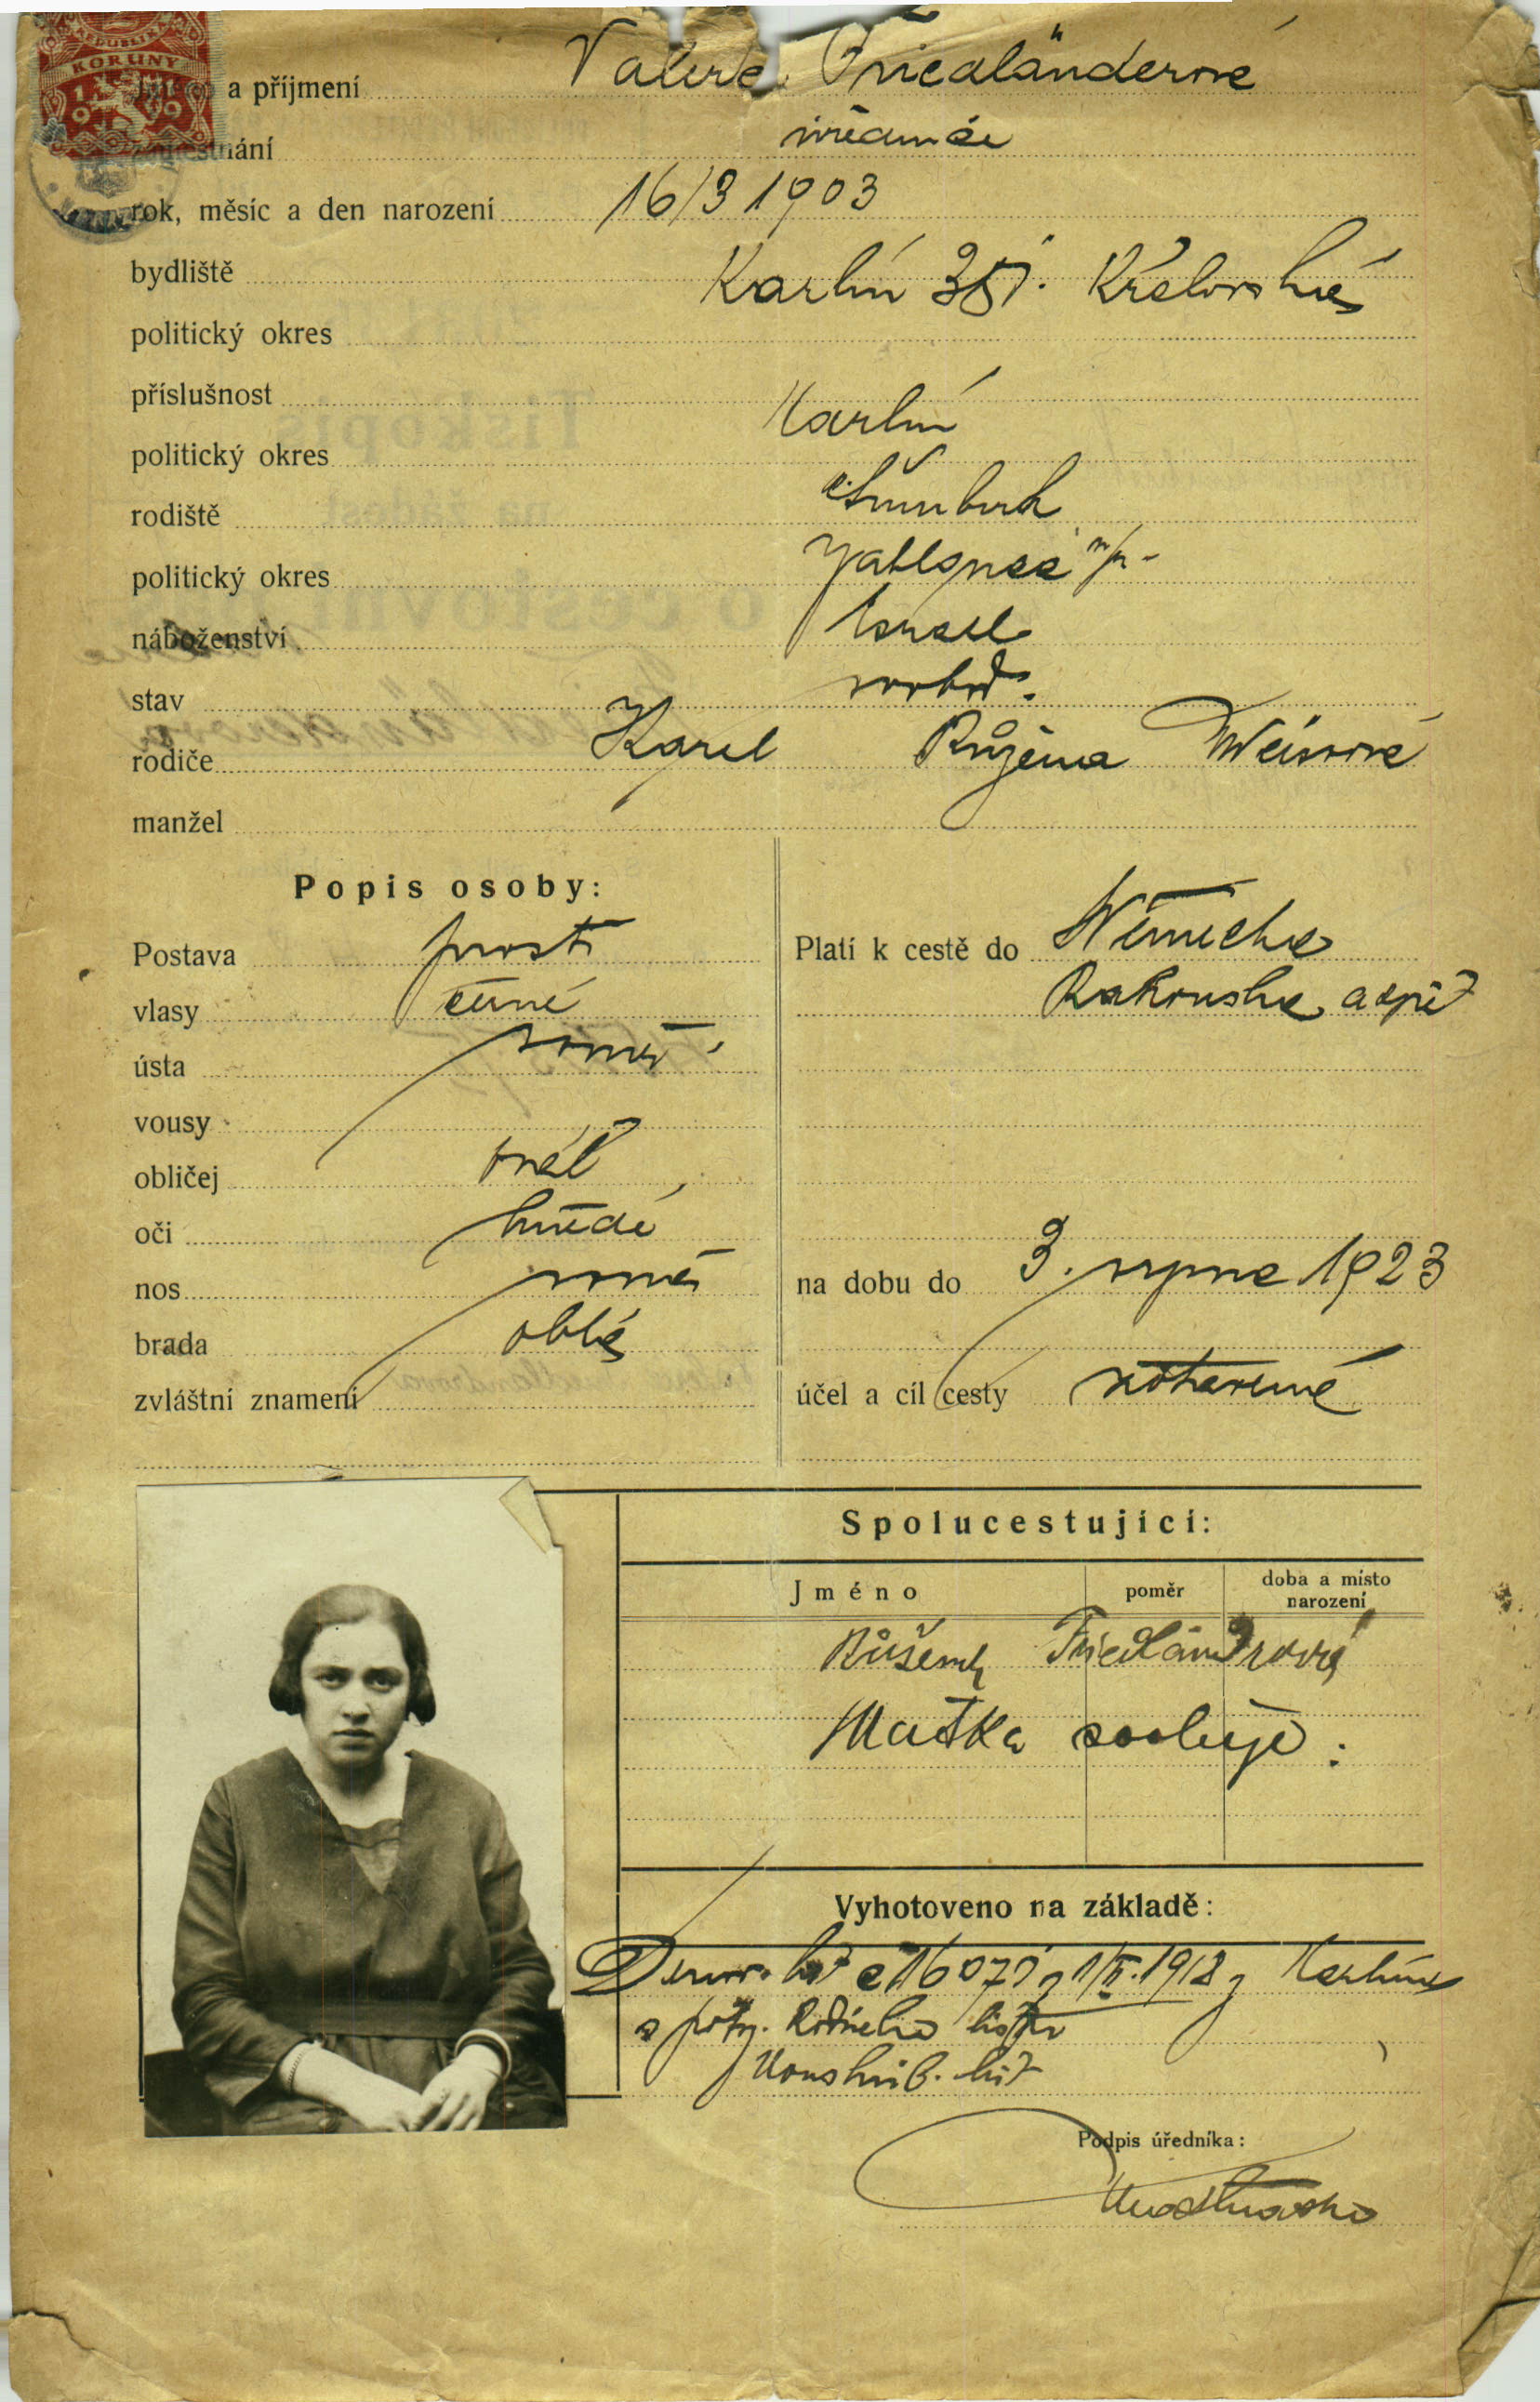 REPUBLIK
KORUNY
1919
a příjmení Valerie Friedländerová
zaměstnání úřednice
rok, měsíc a den narození 16/3 1903
bydliště Karlín 351. Královská
politický okres
příslušnost Karlín
politický okres
rodiště Šumburk
politický okres Jablonec n/n
náboženství israel
stav svobd.
rodiče Karel Růžena Weisová
manžel
Popis osoby:
Postava prostř
vlasy černé
ústa souměr
vousy
obličej ovál
oči hnědé
nos souměr
brada oblá
zvláštní znamení
Platí k cestě do Německa
Rakouska a zpět
na dobu do 3. srpna 1923
účel a cíl cesty zotavení
Spolucestující:
Jméno
poměr
doba a místo narození
Růžena Friedländrová
Matka svoluje.
Vyhotoveno na základě:
Domov. list č 16071 z 1/II. 1918 z Karlína
a potvr. Rodného listu
Podpis úředníka: